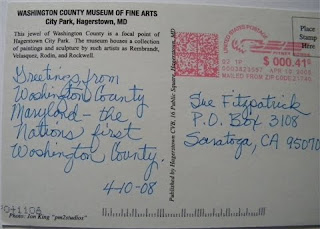 WASHINGTON COUNTY MUSEUM OF FINE ARTS
City Park, Hagerstown, MD
This jewel of Washington County is a focal point of
Hagerstown City Park. The museum houses a collection
of paintings and sculpture by such artists as Rembrandt,
Velasquez, Rodin, and Rockwell.
Greetings from
Washington County
Maryland - the
Nations first
Washington County.
4-10-08
Photo: Jon King "pm2studios"
Published by Hagerstown CVB, 16 Public Square, Hagerstown
UNITED STATES POSTAGE
02 1P
$ 000.41
APR 10 2008
MAILED FROM ZIP CODE 21740
Place
Stamp
Here
Sue Fitzpatrick
P.O. Box 3108
Saratoga, CA 95070